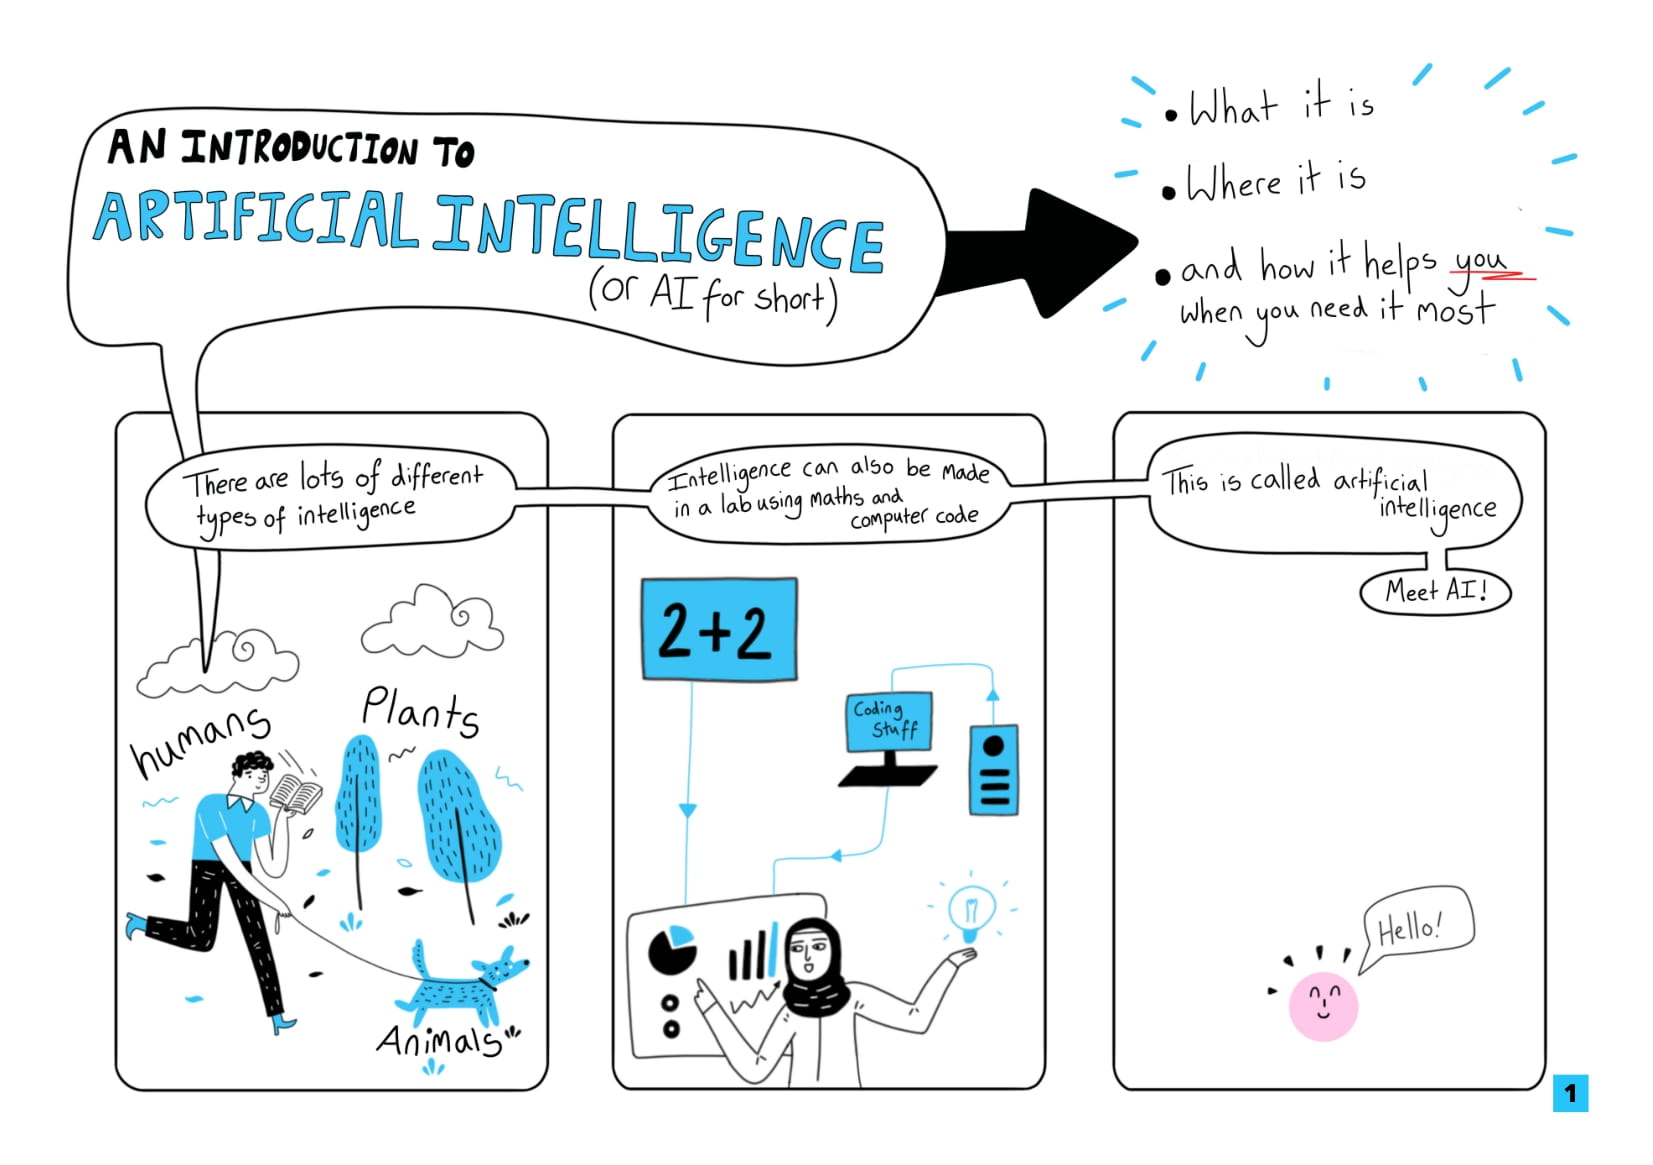 AN INTRODUCTION TO
ARTIFICIAL INTELLIGENCE
(or AI for short)
• What it is
• Where it is
• and how it helps you
when you need it most
There are lots of different
types of intelligence
humans
Plants
Animals
Intelligence can also be made
in a lab using maths and
computer code
2+2
Coding
Stuff
This is called artificial
intelligence
Meet AI!
Hello!
1